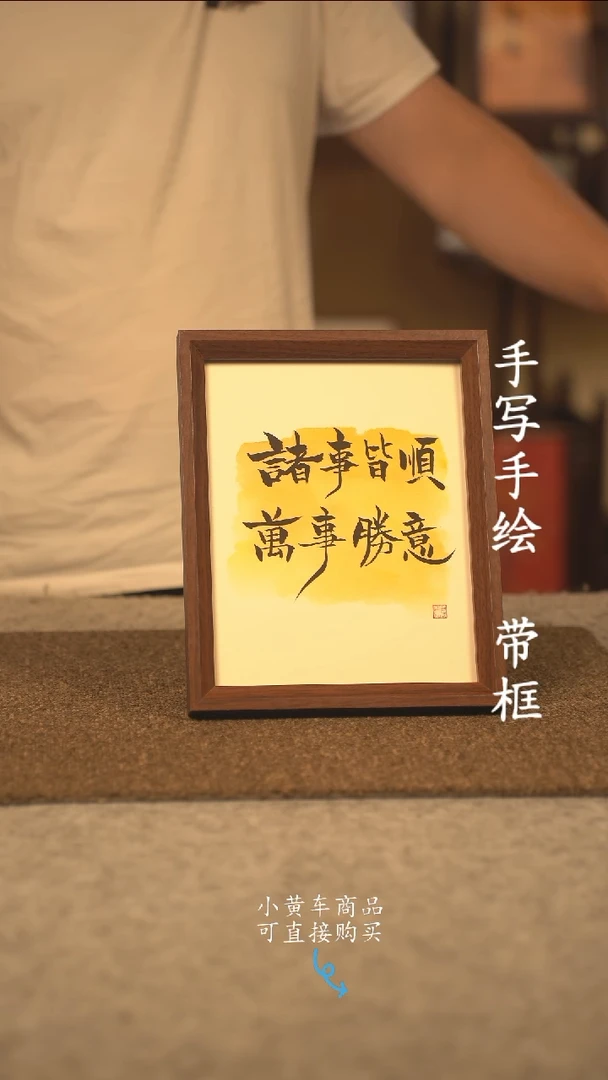 諸事皆順
萬事勝意
手写手绘 带框
小黄车商品
可直接购买